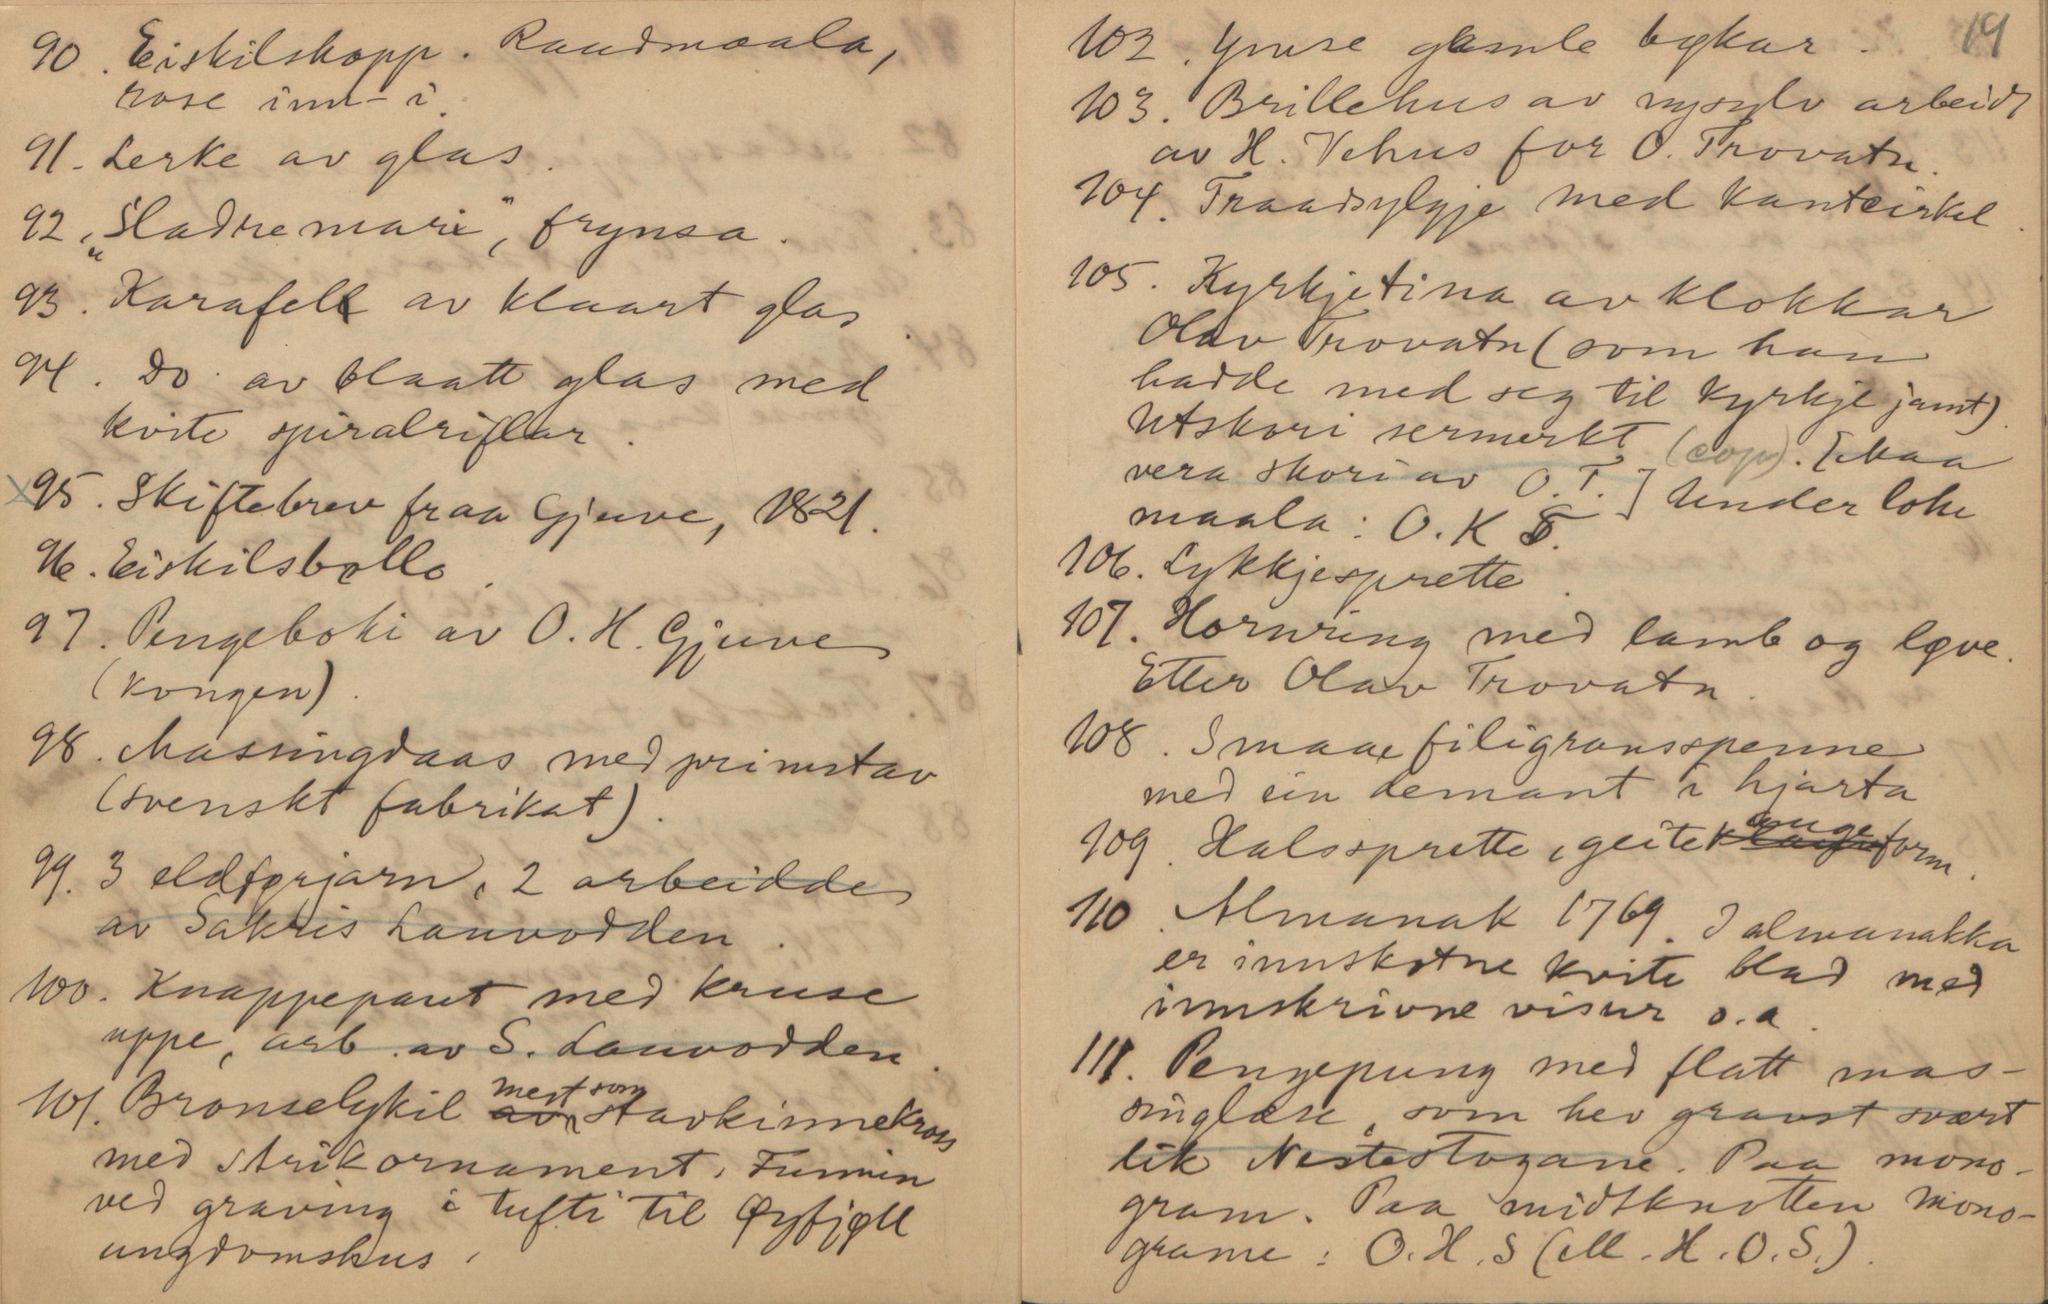 90. Eiskilskopp. Raudmaala,
rose inn-i.
91. Lerke av glas.
92. „Sladremari", frynsa.
93. Karafell av klaart glas.
94. Do av blaatt glas med
kvite spiralriflar.
x 95. Skiftebrev fraa Gjuve, 1821.
96. Eiskilsbolle.
97. Pengeboki av O. H. Gjuve
(Kongen).
98. Massingdaas med primstav
(svenskt fabrikat).
99. 3 eldførjarn, 2 arbeidde
av Sakris Lauvodden.
100. Knappepant med kruse
uppe, arb. av S. Lauvodden.
101. Bronselykil mest som stavkinnekross
med strikornament. Funnin
ved graving i tufti til Øyfjøll
ungdomshus.
19
102. Ymse gamle bøkar.
103. Brillehus av nysylv arbeidt
av H. Vehus for O. Trovatn.
104. Traadsylgje med kantcirkel.
105. Kyrkjetina av klokkar
Olav Trovatn (som han
hadde med seg til kyrkje jamt).
Utskori sermerkt (cop). [kaa
vera skori av O. T.] Under loke
maala: O. K T.
106. Lykkjesprette.
107. Hornring med lamb og løve.
Etter Olav Trovatn.
108. Smaae filigransspenne
med ein demant i hjarta
109. Halssprette, geiteaugeform.
110. Almanak 1769. I almanakka
er innskotne kvite blad med
innskrivne visur o.a.
111. Pengepung med flatt mas-
singlæse, som hev gravst svært
lik Nestestogane. Paa mono-
gram. Paa midtknotten mono-
grame: O. H. S (ell. H. O. S.)